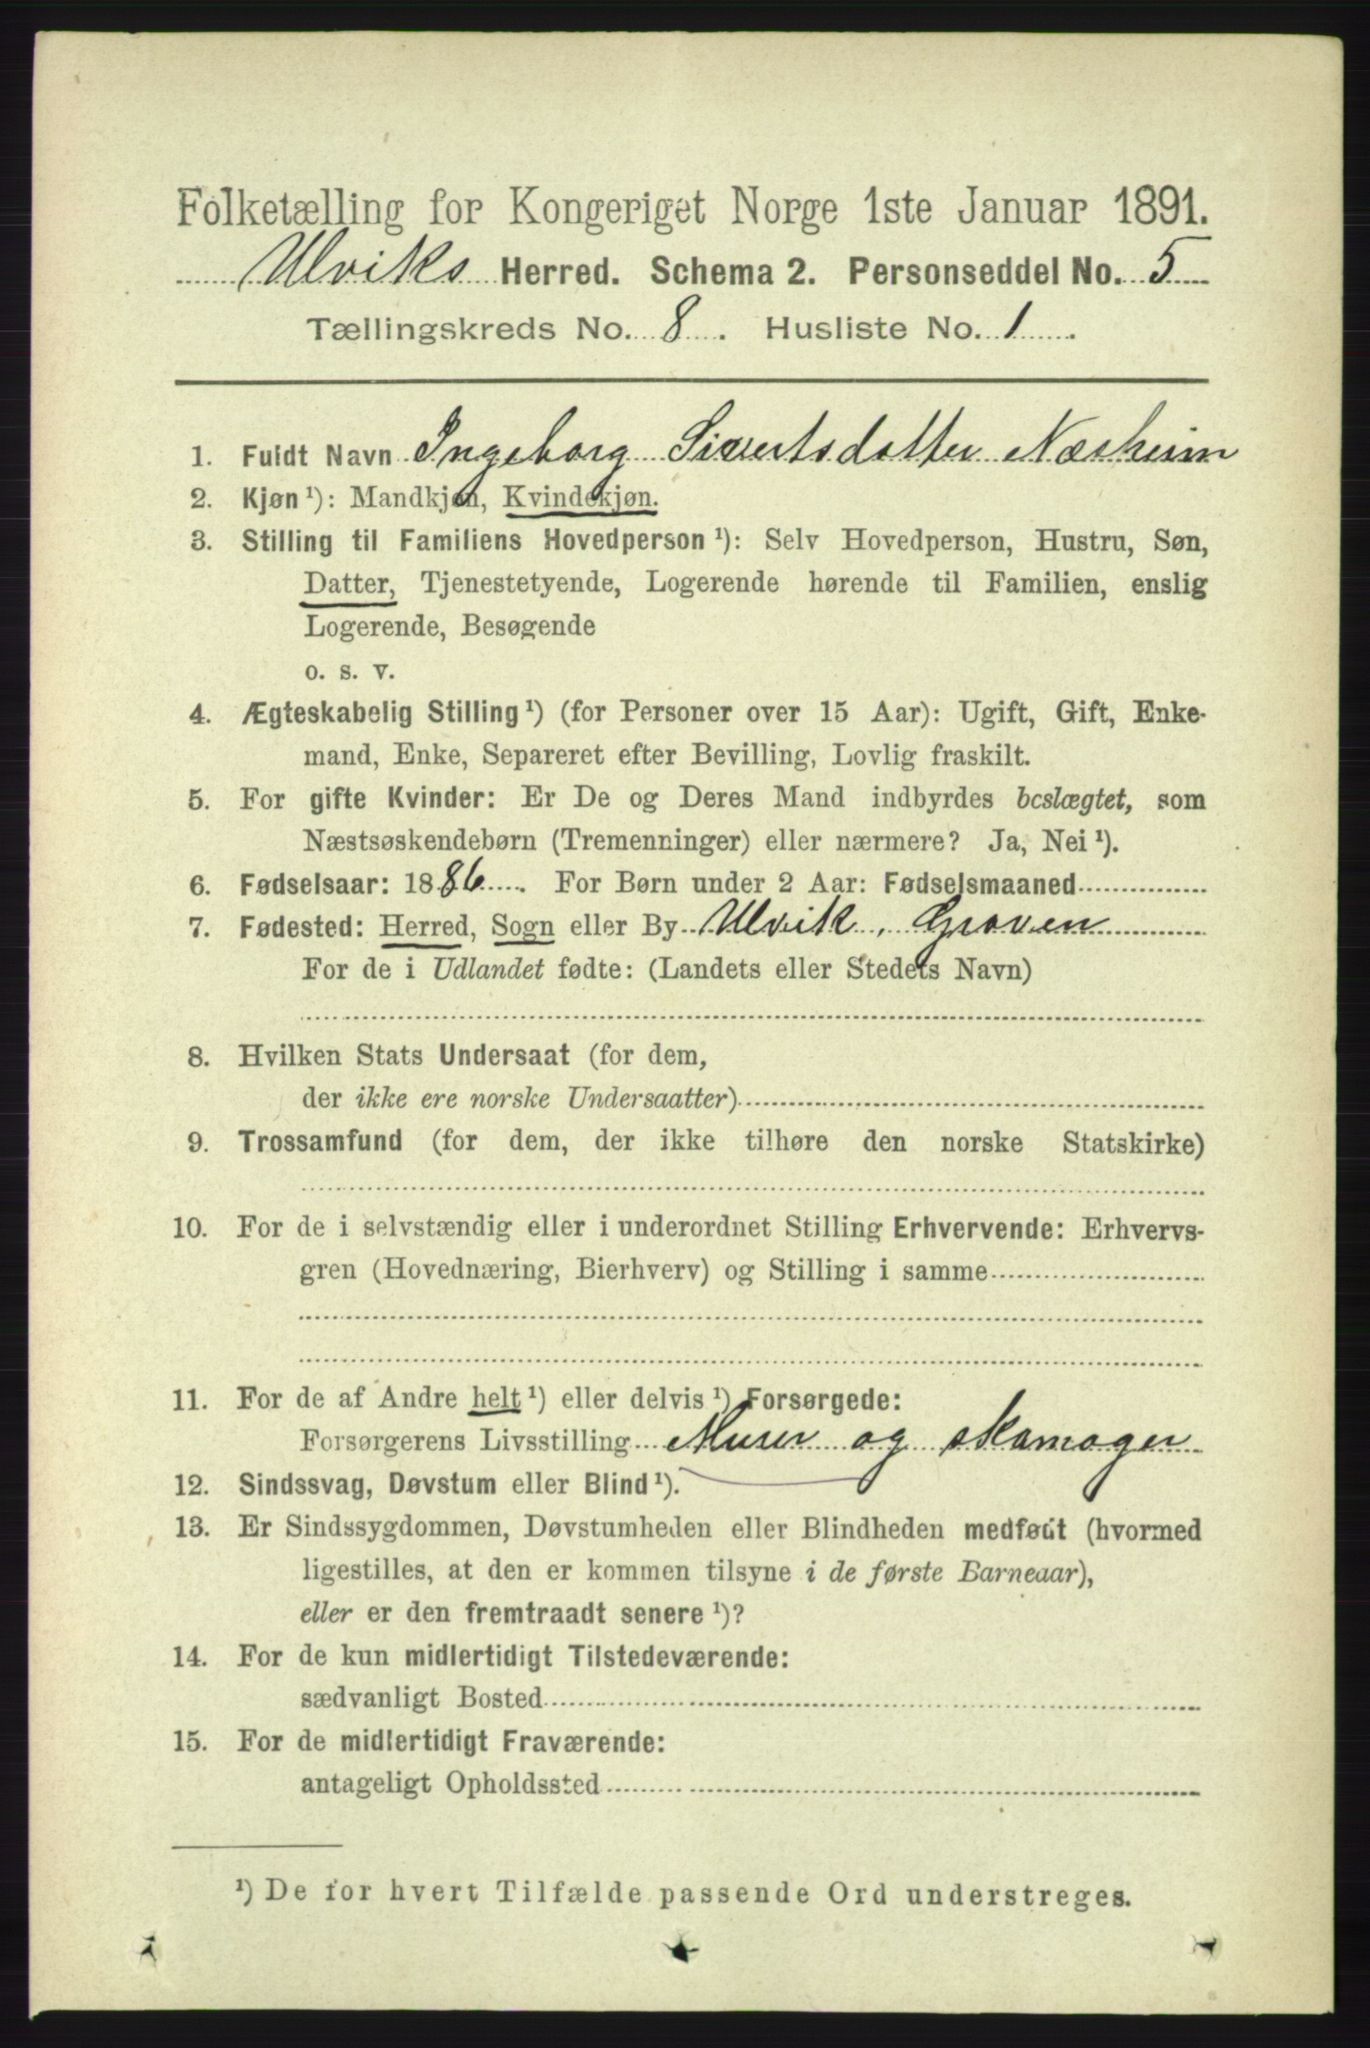 Folketælling for Kongeriget Norge 1ste Januar 1891.
Ulviks Herred. Schema 2. Personseddel No. 5
Tællingskreds No. 8. Husliste No. 1.
1. Fuldt Navn Ingeborg Sivertsdatter Næsheim
2. Kjøn ¹): Mandkjøn, Kvindekjøn.
3. Stilling til Familiens Hovedperson ¹): Selv Hovedperson, Hustru, Søn,
Datter, Tjenestetyende, Logerende hørende til Familien, enslig
Logerende, Besøgende
o. s. v.
4. Ægteskabelig Stilling ¹) (for Personer over 15 Aar): Ugift, Gift, Enke-
mand, Enke, Separeret efter Bevilling, Lovlig fraskilt.
5. For gifte Kvinder: Er De og Deres Mand indbyrdes beslægtet, som
Næstsøskendebørn (Tremenninger) eller nærmere? Ja, Nei ¹).
6. Fødselsaar: 1886. For Børn under 2 Aar: Fødselsmaaned
7. Fødested: Herred, Sogn eller By Ulvik, Graven
For de i Udlandet fødte: (Landets eller Stedets Navn)
8. Hvilken Stats Undersaat (for dem,
der ikke ere norske Undersaatter)
9. Trossamfund (for dem, der ikke tilhøre den norske Statskirke)
10. For de i selvstændig eller i underordnet Stilling Erhvervende: Erhvervs-
gren (Hovednæring, Bierhverv) og Stilling i samme
11. For de af Andre helt ¹) eller delvis ¹) Forsørgede:
Forsørgerens Livsstilling Murer og skomager
12. Sindssvag, Døvstum eller Blind ¹).
13. Er Sindssygdommen, Døvstumheden eller Blindheden medfødt (hvormed
ligestilles, at den er kommen tilsyne i de første Barneaar),
eller er den fremtraadt senere ¹)?
14. For de kun midlertidigt Tilstedeværende:
sædvanligt Bosted
15. For de midlertidigt Fraværende:
antageligt Opholdssted
¹) De for hvert Tilfælde passende Ord understreges.